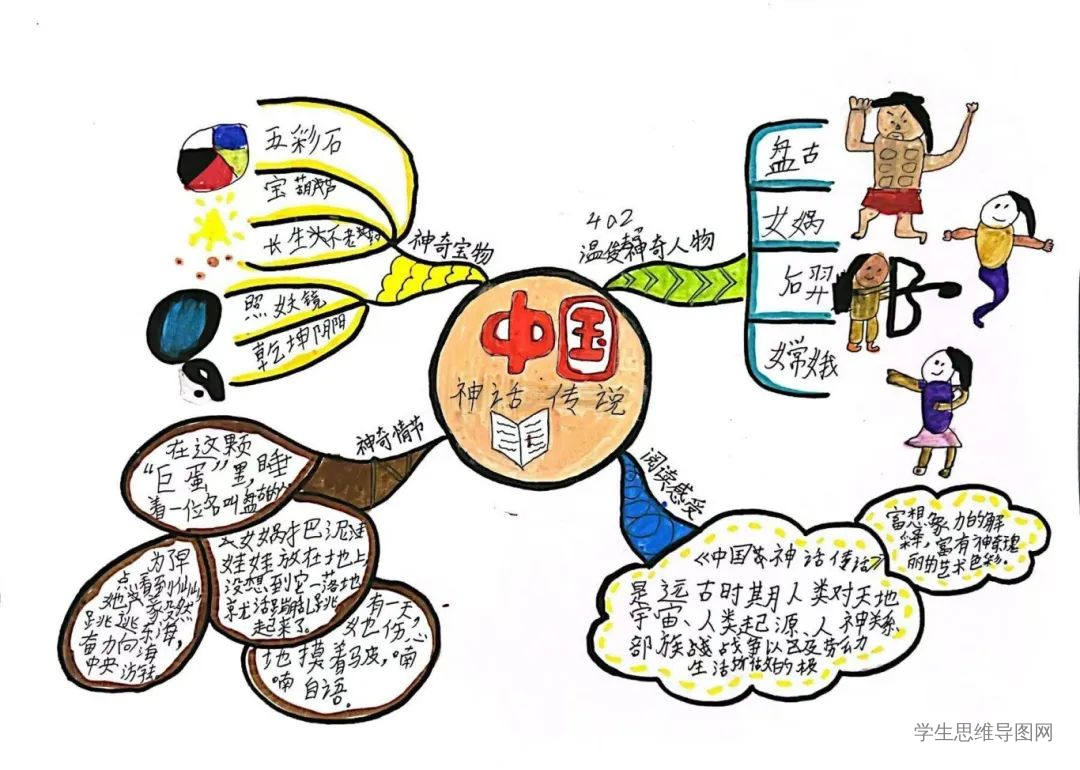 中国
神话传说
神奇宝物
五彩石
宝葫芦
长生
不老
照妖镜
乾坤
阴阳
402
温俊
神奇人物
盘古
女娲
后羿
嫦娥
神奇情节
在这颗
“巨蛋”里,睡
着一位名叫盘古的
女娲把泥
娃娃放在地上,
没想到它一落地
就活蹦乱跳
起来了。
为了早
点看到仙山
她
跳进东海,
奋力向海
中央游去。
有一天
她伤心
地摸着马皮,喃
喃自语。
阅读感受
《中国神话传说》
是远古时期人类对天地
宇宙、人类起源、人神关系、
部族战争以及劳动
生活
的
富想象力的解
释,富有神奇瑰
丽的艺术色彩。
学生思维导图网